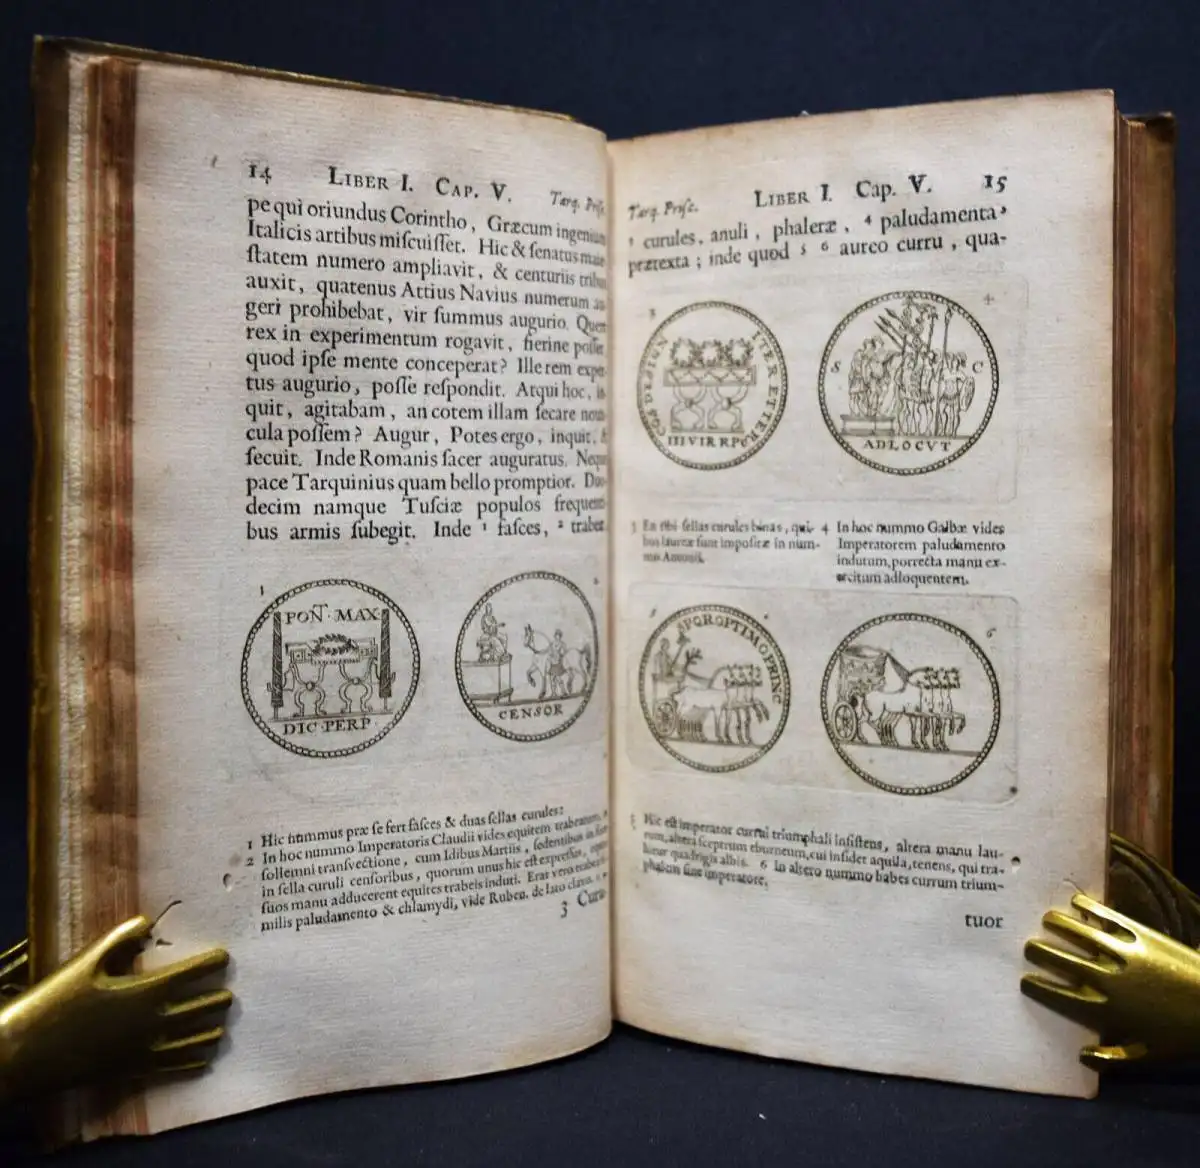 14 LIBER I. CAP. V. Tarq. Prisc.
pe qui oriundus Corintho, Græcum ingenium
Italicis artibus miſcuiſſet. Hic & ſenatus maie-
ſtatem numero ampliavit, & centuriis tribus
auxit, quatenus Attius Navius numerum au-
geri prohibebat, vir ſummus augurio. Quem
rex in experimentum rogavit, fierine poſſet
quod ipſe mente conceperat? Ille rem exper-
tus augurio, poſſe reſpondit. Atqui hoc, in-
quit, agitabam, an cotem illam ſecare nova-
cula poſſem? Augur, Potes ergo, inquit, &
ſecuit. Inde Romanis ſacer auguratus. Neque
pace Tarquinius quam bello promptior. Duo-
decim namque Tuſciæ populos frequenti-
bus armis ſubegit. Inde 1 faſces, 2 trabeæ
1
PONT· MAX·
DIC·PERP·
2
CENSOR
1 Hic nummus præ ſe fert faſces & duas ſellas curules:
2 In hoc nummo Imperatoris Claudii vides equitem trabeatum,
ſollemni tranſvectione, cum Idibus Martiis, ſedentibus in
in ſella curuli cenſoribus, quorum unus hic eſt expreſſus,
ſuos manu adducerent equites trabeis induti. Erat vero trabea
milis paludamento & chlamydi, vide Ruben. de lato clavo.
3 Curu-
Tarq. Priſc. LIBER I. Cap. V. 15
3 curules, anuli, phaleræ, 4 paludamenta,
prætexta; inde quod 5 6 aureo curru, qua-
3
COS DESIGN ITER ET TER
III VIR R P C
4
S C
ADLOCVT
3 En tibi ſellas curules binas, qui-
bus laureæ ſunt impoſitæ in num-
mo Antonii.
4 In hoc nummo Galbæ vides
Imperatorem paludamento
indutum, porrecta manu ex-
ercitum adloquentem.
5
SPQR OPTIMO PRINC
6
5 Hic eſt imperator currui triumphali inſiſtens, altera manu lau-
rum, altera ſceptrum eburneum, cui inſidet aquila, tenens, qui tra-
hitur quadrigis albis. 6 In altero nummo habes currum trium-
phalem ſine imperatore.
tuor